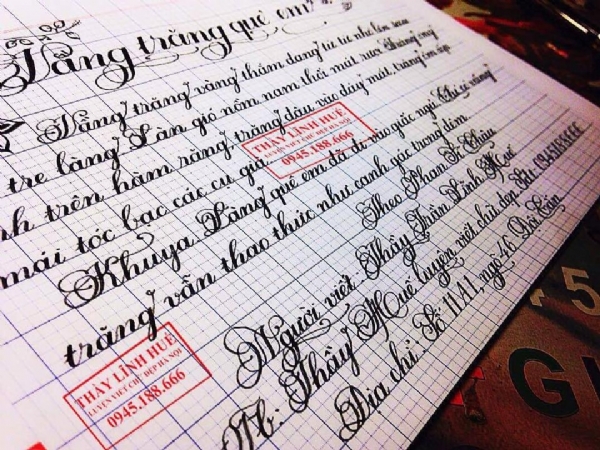 Vầng trăng quê em
Vầng trăng vàng thắm đang từ từ nhô lên sau
tre làng. Làn gió nồm nam thổi mát rượi. Trăng óng
nh trên hàm răng, trăng đậu vào đáy mắt, trăng ôm ấp
mái tóc bạc các cụ già.
THẦY LĨNH HUÊ
LUYỆN VIẾT CHỮ ĐẸP HÀ NỘI
0945.188.666
Khuya. Làng quê em đã đi vào giấc ngủ. Chỉ có vầng
trăng vẫn thao thức như canh gác trong đêm.
Theo Phan Sĩ Châu
THẦY LĨNH HUÊ
LUYỆN VIẾT CHỮ ĐẸP HÀ NỘI
0945.188.666
Người viết: Thầy Trần Lĩnh Huê
Thầy Huê luyện viết chữ đẹp. 0945188666
Địa chỉ: Số 11A11, ngõ 46 Đội Cấn
5
G